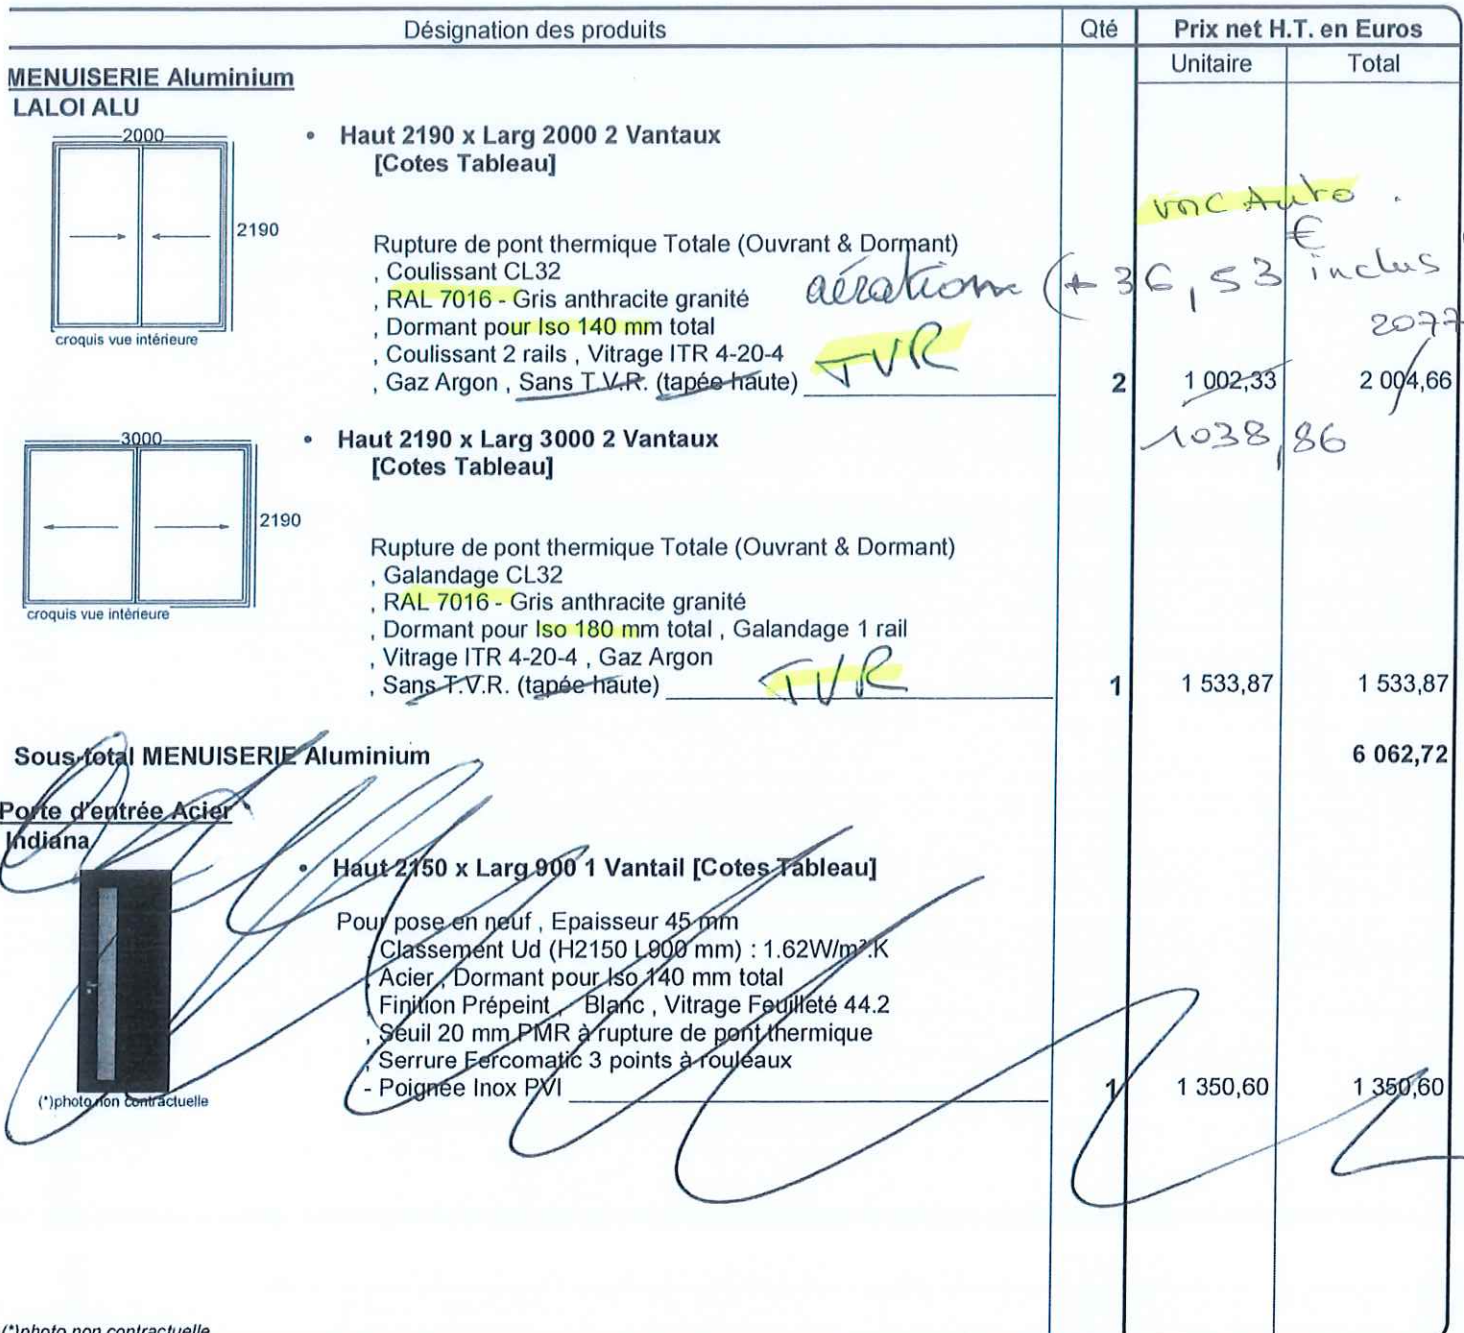 Désignation des produits Qté Prix net H.T. en Euros
Unitaire Total
MENUISERIE Aluminium
LALOI ALU
2000
2190
croquis vue intérieure
• Haut 2190 x Larg 2000 2 Vantaux
[Cotes Tableau]
VMC Auto .
€
Rupture de pont thermique Totale (Ouvrant & Dormant)
, Coulissant CL32
aération (+ 36,53 inclus
, RAL 7016 - Gris anthracite granité
, Dormant pour Iso 140 mm total
2077
, Coulissant 2 rails , Vitrage ITR 4-20-4
TVR
, Gaz Argon , Sans T.V.R. (tapée haute) 2 1 002,33 2 004,66
1038,86
3000
2190
croquis vue intérieure
• Haut 2190 x Larg 3000 2 Vantaux
[Cotes Tableau]
Rupture de pont thermique Totale (Ouvrant & Dormant)
, Galandage CL32
, RAL 7016 - Gris anthracite granité
, Dormant pour Iso 180 mm total , Galandage 1 rail
, Vitrage ITR 4-20-4 , Gaz Argon
, Sans T.V.R. (tapée haute) TVR 1 1 533,87 1 533,87
Sous-total MENUISERIE Aluminium 6 062,72
Porte d'entrée Acier
Indiana
(*)photo non contractuelle
• Haut 2150 x Larg 900 1 Vantail [Cotes Tableau]
Pour pose en neuf , Epaisseur 45 mm
, Classement Ud (H2150 L900 mm) : 1.62W/m².K
, Acier , Dormant pour Iso 140 mm total
, Finition Prépeint , Blanc , Vitrage Feuilleté 44.2
, Seuil 20 mm PMR à rupture de pont thermique
, Serrure Fercomatic 3 points à rouleaux
- Poignée Inox PVI 1 1 350,60 1 350,60
(*)photo non contractuelle